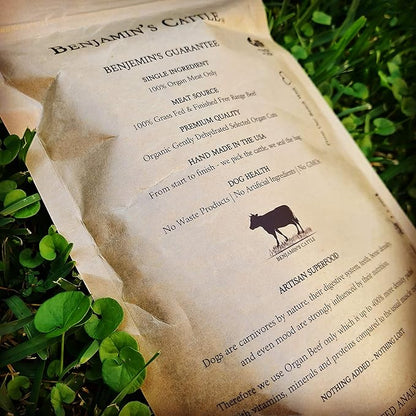 BENJAMIN'S CATTLE
BENJEMIN'S GUARANTEE
SINGLE INGREDIENT
100% Organ Meat Only
MEAT SOURCE
100% Grass Fed & Finished Free Range Beef
PREMIUM QUALITY
Organic Gently Dehydrated Selected Organ Cuts
HAND MADE IN THE USA
From start to finish - we pick the cattle, we seal the bag
DOG HEALTH
No Waste Products | No Artificial Ingredients | No GMOs
BENJAMIN'S CATTLE
ARTISAN SUPERFOOD
Dogs are carnivores by nature, their digestive system, teeth, bone, health
and even mood are strongly influenced by their nutrition.
Therefore we use Organ Beef only which is up to 400% more dense
vitamins, minerals and proteins compared to the usual
NOTHING ADDED - NOTHING LOST